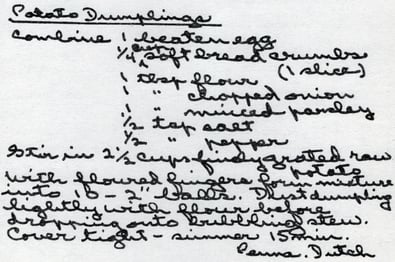 Potato Dumplings
Combine 1 beaten egg
1/4 cup soft bread crumbs
(1 slice)
1 tbsp flour
1 " chopped onion
1 " minced parsley
1/2 tsp salt
1/2 " pepper
Stir in 2 1/2 cups finely grated raw
potato
with floured fingers form mixture
into 10 - 2" balls. Dust dumpling
lightly with flour before
dropping onto bubbling stew.
Cover tight - simmer 15 min.
Penna. Dutch